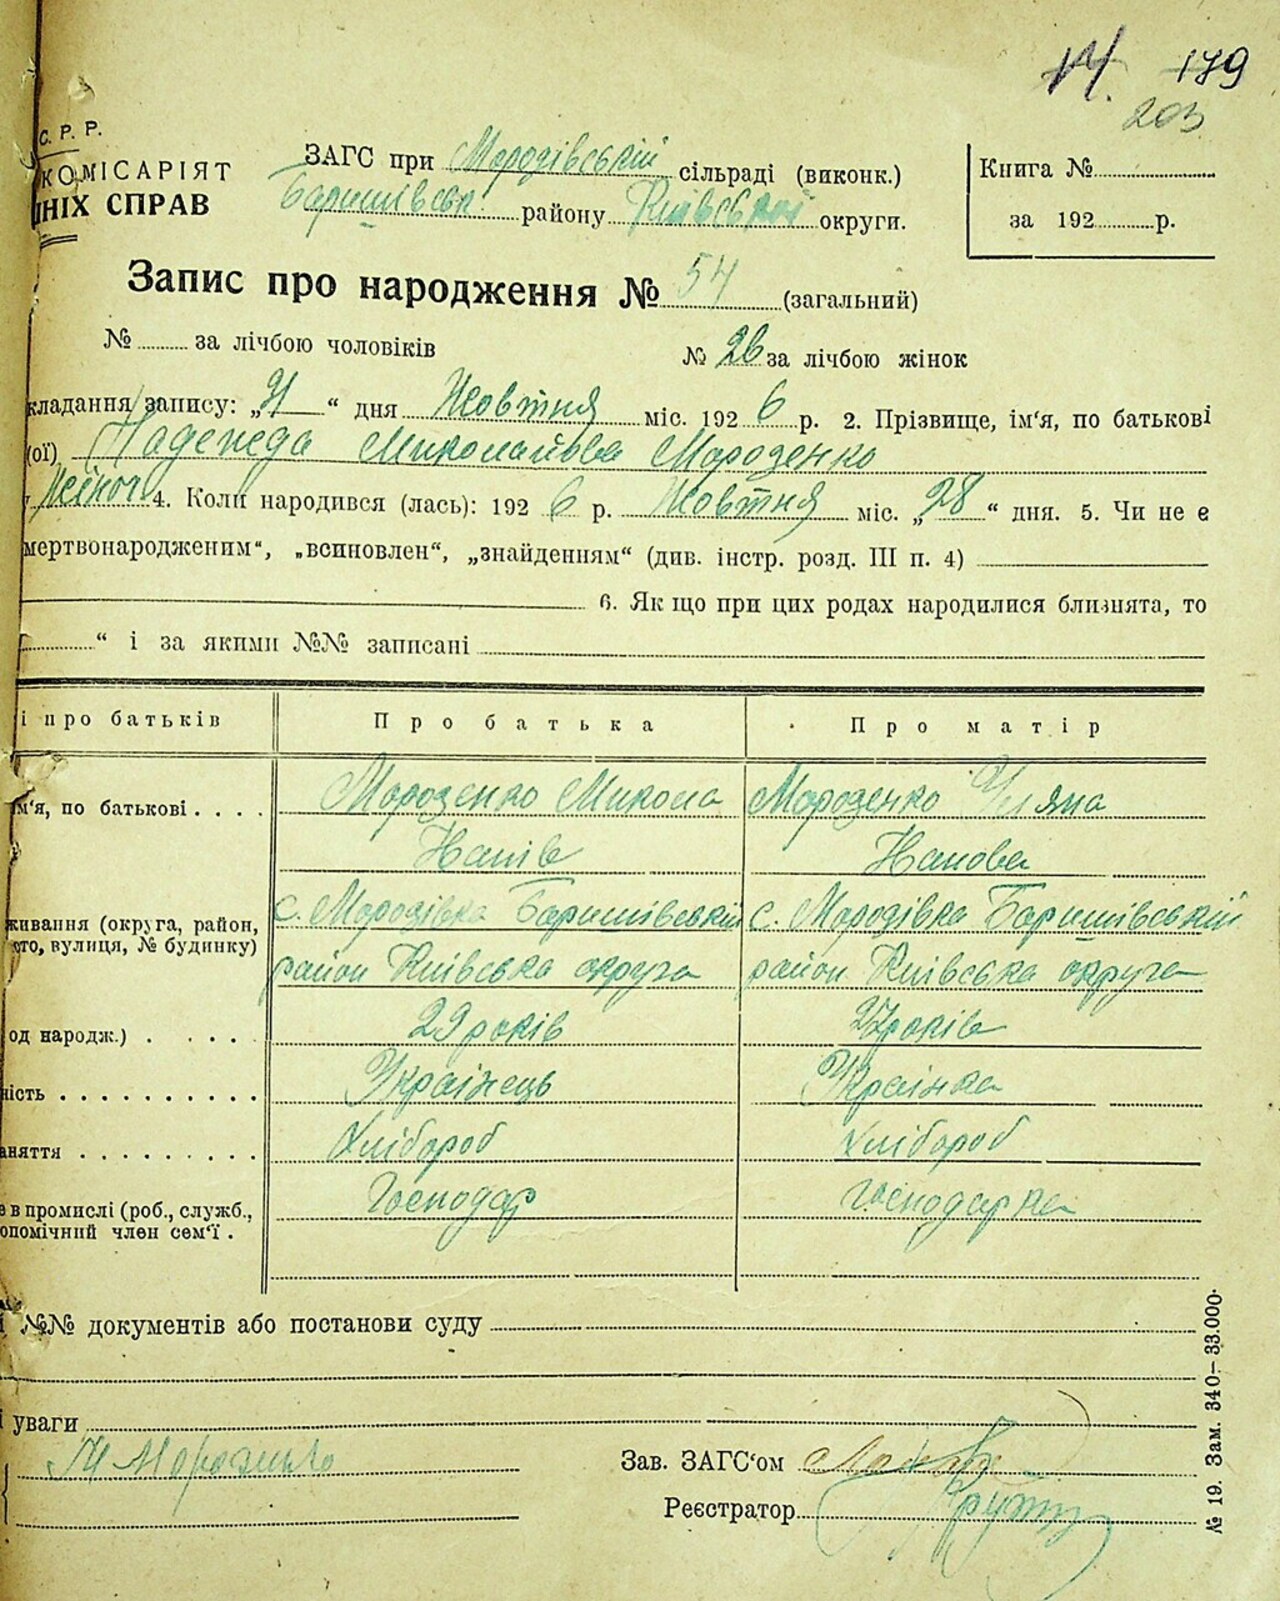 14. 179
203
С. Р. Р.
КОМІСАРІЯТ
НІХ СПРАВ
ЗАГС при Мородівській сільраді (виконк.)
Баришівськ району Київській округи.
Книга №
за 192 р.
Запис про народження № 54 (загальний)
№ за лічбою чоловіків
№ 26 за лічбою жінок
кладання запису: „31“ дня Жовтня міс. 1926 р. 2. Прізвище, ім‘я, по батькові
(ої) Надежда Миколайова Морозенко
Жіноч 4. Коли народився (лась): 1926 р. Жовтня міс. „28“ дня. 5. Чи не є
мертвонародженим“, „всиновлен“, „знайденням“ (див. інстр. розд. III п. 4)
6. Як що при цих родах народилися близнята, то
“ і за якими №№ записані
і про батьків Про батька Про матір
ім‘я, по батькові Морозенко Микола Морозенко Уляна
Нанів Нанова
живання (округа, район, с. Мородівка Баришівській с. Мородівка Баришівській
сто, вулиця, № будинку) район Київська округа район Київська округа
од народж.) 29 років 27 років
ність Українець Українка
аняття Хлібороб Хлібороб
е в промислі (роб., служб., Господар Господарка
опомічний член сем‘ї
і №№ документів або постанови суду
і уваги
М Морозенко
Зав. ЗАГС‘ом
Реєстратор
№ 19. Зам. 340–33.000.